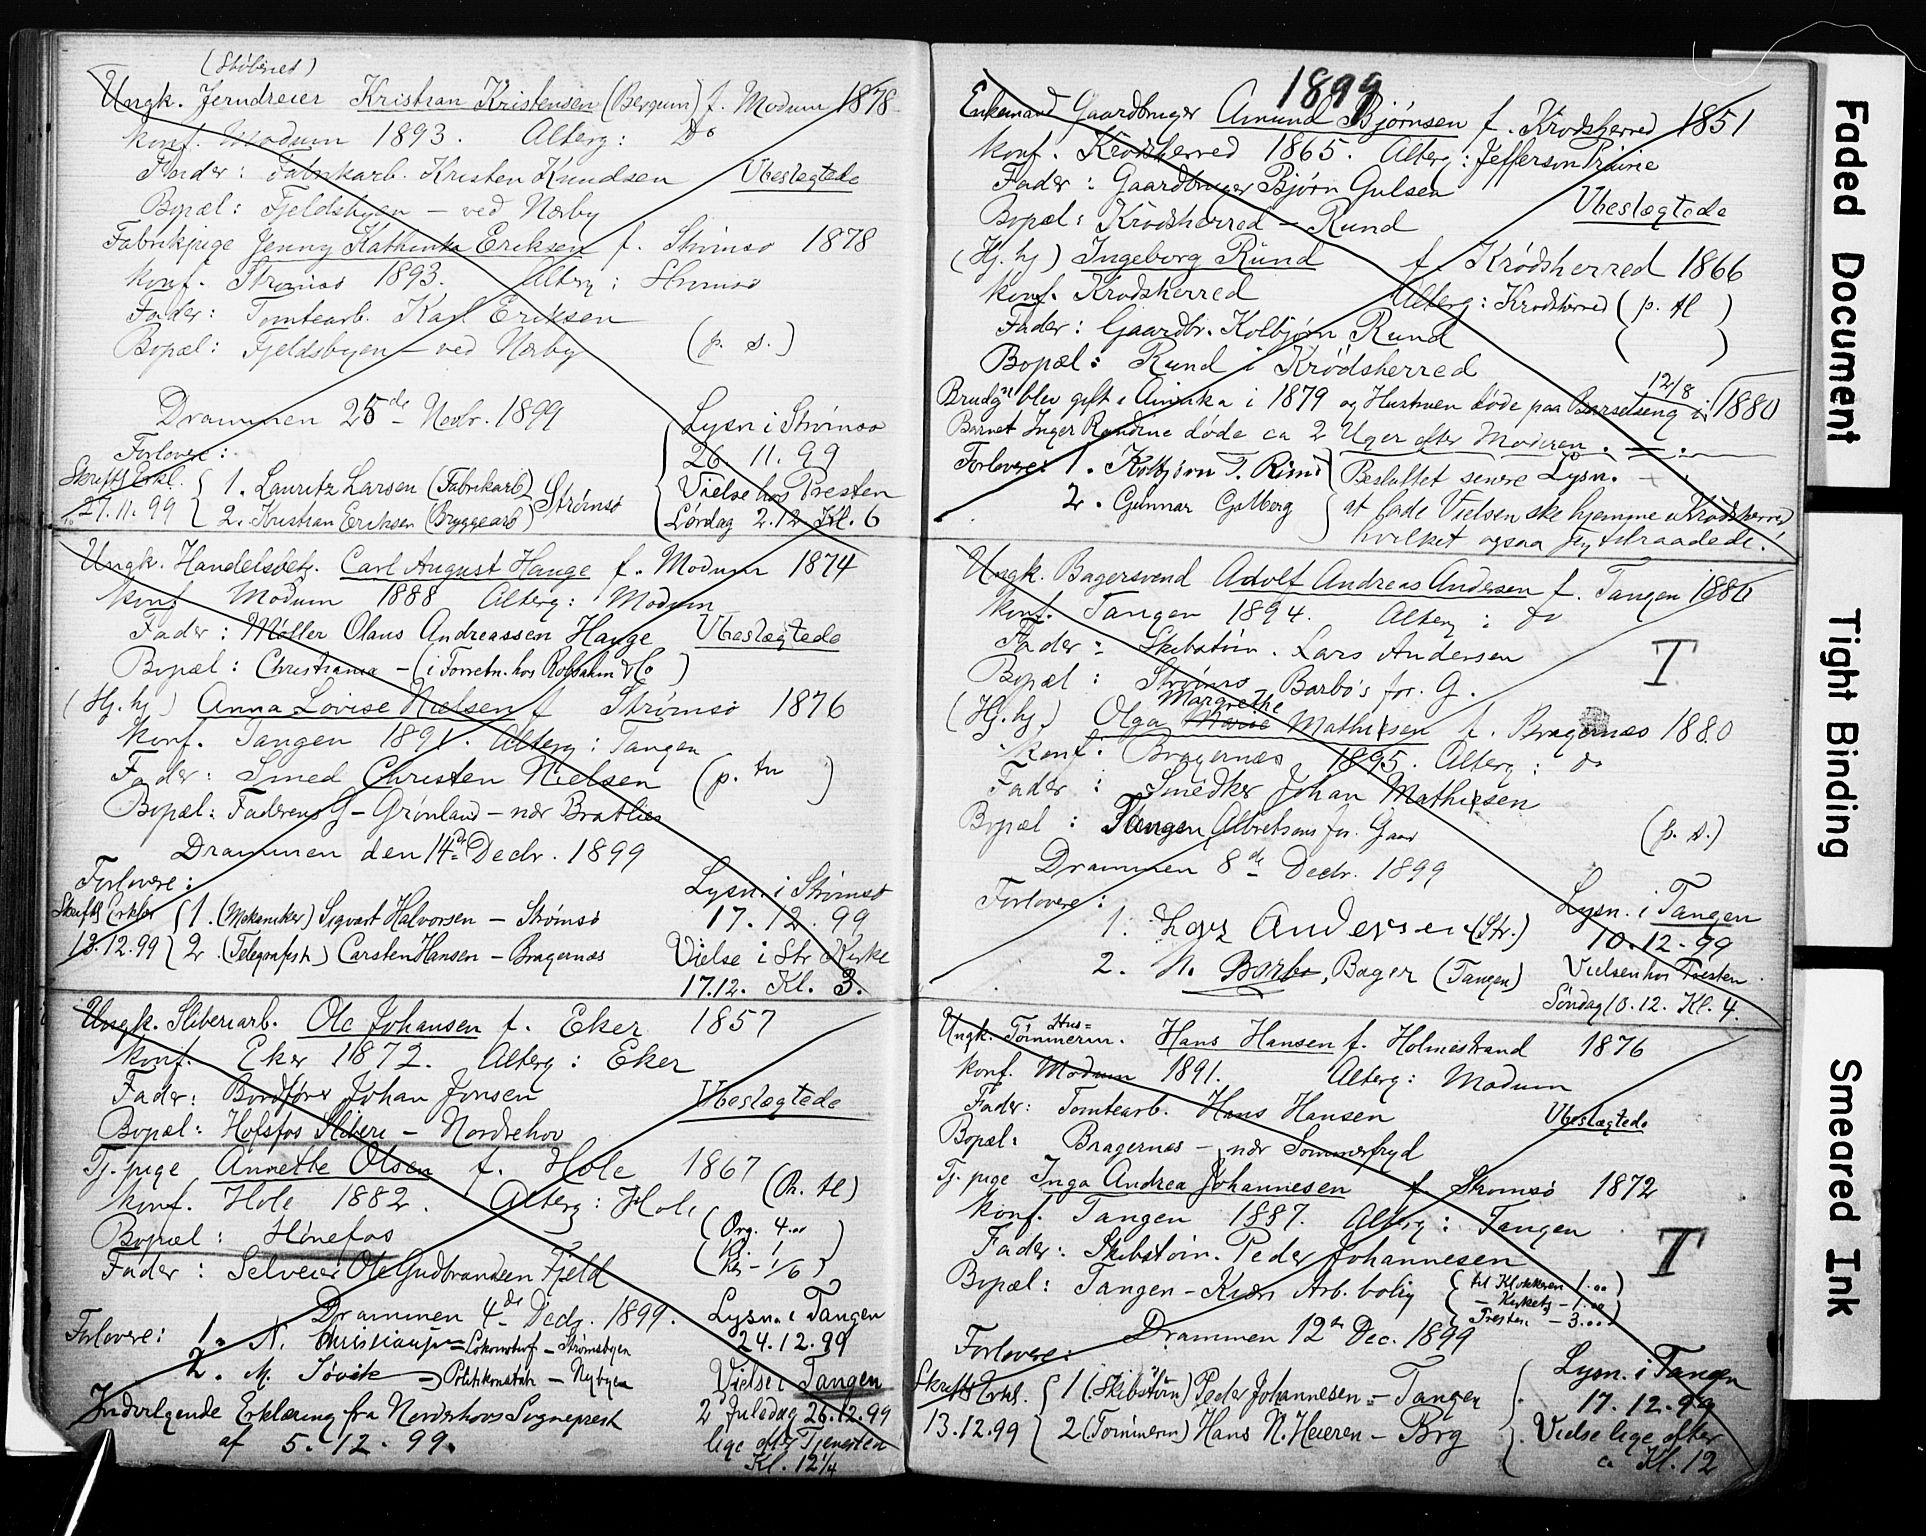 (Støberiet)
Ungk. Jerndreier Kristian Kristensen (Bergum) f. Modum 1878
konf. Modum 1893. Alterg: Do
Fader: Fabrikarb. Kristen Knudsen Ubeslægtede
Bopæl: Fjeldsbyen – ved Nærby
Fabrikpige Jenny Kathinka Eriksen f. Strømsø 1878
konf. Strømsø 1893. Alterg: Strømsø
Fader: Tomtearb. Karl Eriksen
Bopæl: Fjeldsbyen – ved Nærby (p. s.)
Drammen 25de Novbr. 1899
Lysn i Strømsø
26 11. 99
Vielse hos Presten
Lørdag 2.12. Kl. 6
Forlovere:
Skriftl Erkl. 1. Lauritz Larsen (Fabrikarb)
27.11.99 2. Kristian Eriksen (Bryggearb) Strømsø
Ungk. Handelsbetj. Carl August Hauge f. Modum 1874
konf Modum 1888 Alterg: Modum
Fader: Møller Olaus Andreassen Hauge Ubeslægtede
Bopæl: Christiania – (i Forretn. hos Rolfsahm & Co)
(Hj. hj) Anna Lovise Nielsen f Strømsø 1876
konf. Tangen 1891. Alterg: Tangen
Fader: Smed Christen Nielsen (p. tn)
Bopæl: Faderens G – Grønland – nær Bratlies
Drammen den 14de Decbr. 1899
Forlovere:
Lysn. i Strømsø
17.12.99
Vielse i Str Kirke
17.12. Kl. 3.
Skriftl Erklær 1. (Mekaniker) Sigvart Halvorsen – Strømsø
18.12.99 2. (Telegrafist) Carsten Hansen – Bragernæs
Ungk. Sliberiarb. Ole Johansen f. Eker 1857
konf. Eker 1872. Alterg: Eker
Fader: Bordfører Johan Jonsen Ubeslægtede
Bopæl: Hofsfos Sliberi – Norderhov
Tj. pige Annette Olsen f. Hole 1867
konf. Hole 1882. Alterg: Hole (P. tl)
Bopæl: Hønefos (Org. 4.00
Fader: Selveier Ole Gudbrandsen Fjeld
Drammen 4de Decbr. 1899.
Lysn. i Tangen
24.12.99
Vielse i Tangen
2 Juledag 26.12.99
lige efter Tjenesten
Kl. 12 1/4
Forlovere: 1. N. Christiansen – Lokomotivf – Strømsbyen
2. M. Søvik – Politikonstabr – Nybyen
Indvilgende Erklæring fra Norderhovs Sogneprest
af 5.12.99.
1899
Enkemand Gaardbruger Amund Bjørnsen f. Krødsherred 1851
konf. Krødsherred 1865. Alterg: Jefferson Prairie
Fader: Gaardbruger Bjørn Gulsen
Bopæl: Krødsherred – Rund Ubeslægtede
(Hj. hj) Ingeborg Rund f. Krødsherred 1866
konf. Krødsherred Alterg: Krødsherred (p. tl)
Fader: Gaardbr. Kolbjørn Rund
Bopæl: Rund i Krødsherred
Brudg blev gift i Amerika i 1879 og Hustruen døde paa Barselseng 12/8 1880
Barnet Inger Randine døde ca 2 Uger efter Moderen.
Forlovere: 1. Kolbjørn T. Rund
2. Gunnar Gulberg
Besluttet senere Lysn.
at lade Vielsen ske hjemme i Krødsherred
hvilket ogsaa jeg tilraadede!
Ungk. Bagersvend Adolf Andreas Andersen f. Tangen 1880
konf. Tangen 1894. Alterg: do
Fader: Skibstøm. Lars Andersen T
Bopæl: Strømsø Barbo's for. G.
Margrethe
(Hj. hj.) Olga Marie Mathisen f. Bragernæs 1880
konf: Bragernæs 1895. Alterg: do
Fader: Snedker Johan Mathisen
Bopæl: Tangen Albretsens for. Gaar (p. s.)
Drammen 8de Decbr. 1899
Forlovere:
1. Lars Andersen (Str.)
2. N. Barbo, Bager (Tangen)
Lysn. i Tangen
10.12.99
Vielsen hos Presten
Søndag 10.12. Kl. 4.
Hus=
Ungk. Tømmerm. Hans Hansen f. Holmestrand 1876
konf. Modum 1891. Alterg: Modum
Fader: Tomtearb. Hans Hansen Ubeslægtede
Bopæl: Bragernæs – nær Sommerfryd
Tj. pige Inga Andrea Johannesen f. Strømsø 1872
konf. Tangen 1887. Alterg: Tangen
Fader: Skibstøm. Peder Johannesen T
Bopæl: Tangen – Kiærs Arb. bolig
til Klokkeren 1.00
– Kirketj – 1.00
Presten – 3.00
Drammen 12te Dec. 1899
Forlovere:
Skriftl Erkl. 1 (Skibstøm) Peder Johannesen – Tangen
13.12.99 2 (Tømmerm) Hans N. Heieren – Brg
Lysn. i Tangen
17.12.99
Vielse lige efter
ca Kl. 12
Faded Document
Tight Binding
Smeared Ink